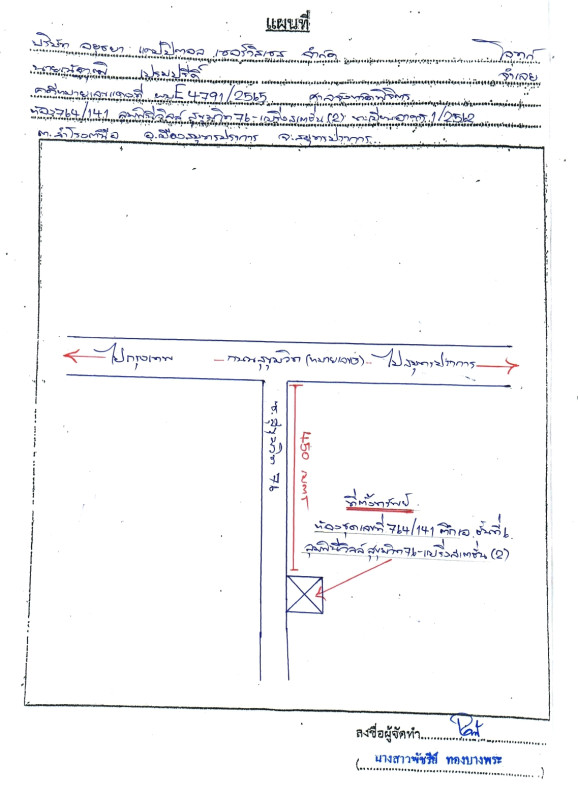 แผนที่
บริษัท อยุธยา แคปปิตอล เซอร์วิสเซส จำกัด โจทก์
จำเลย
คดีหมายเลขแดงที่ ผบE4791/2565
ห้อง 764/141 ลุมพินีวิลล์ สุขุมวิท 76-แบริ่งสเตชั่น (2) ทะเบียนอาคาร 1/2562
ต.สำโรงเหนือ อ.เมืองสมุทรปราการ จ.สมุทรปราการ
ไปกรุงเทพ ถนนสุขุมวิท ไปสมุทรปราการ
ซ.สุขุมวิท 76
450 เมตร
ที่ตั้งทรัพย์
ห้องชุดเลขที่ 764/141 ตึกเอ ชั้นที่ 6
ลุมพินีวิลล์ สุขุมวิท 76-แบริ่งสเตชั่น (2)
ลงชื่อผู้จัดทำ
(นางสาวพัชรีย์ ทองบางพระ)